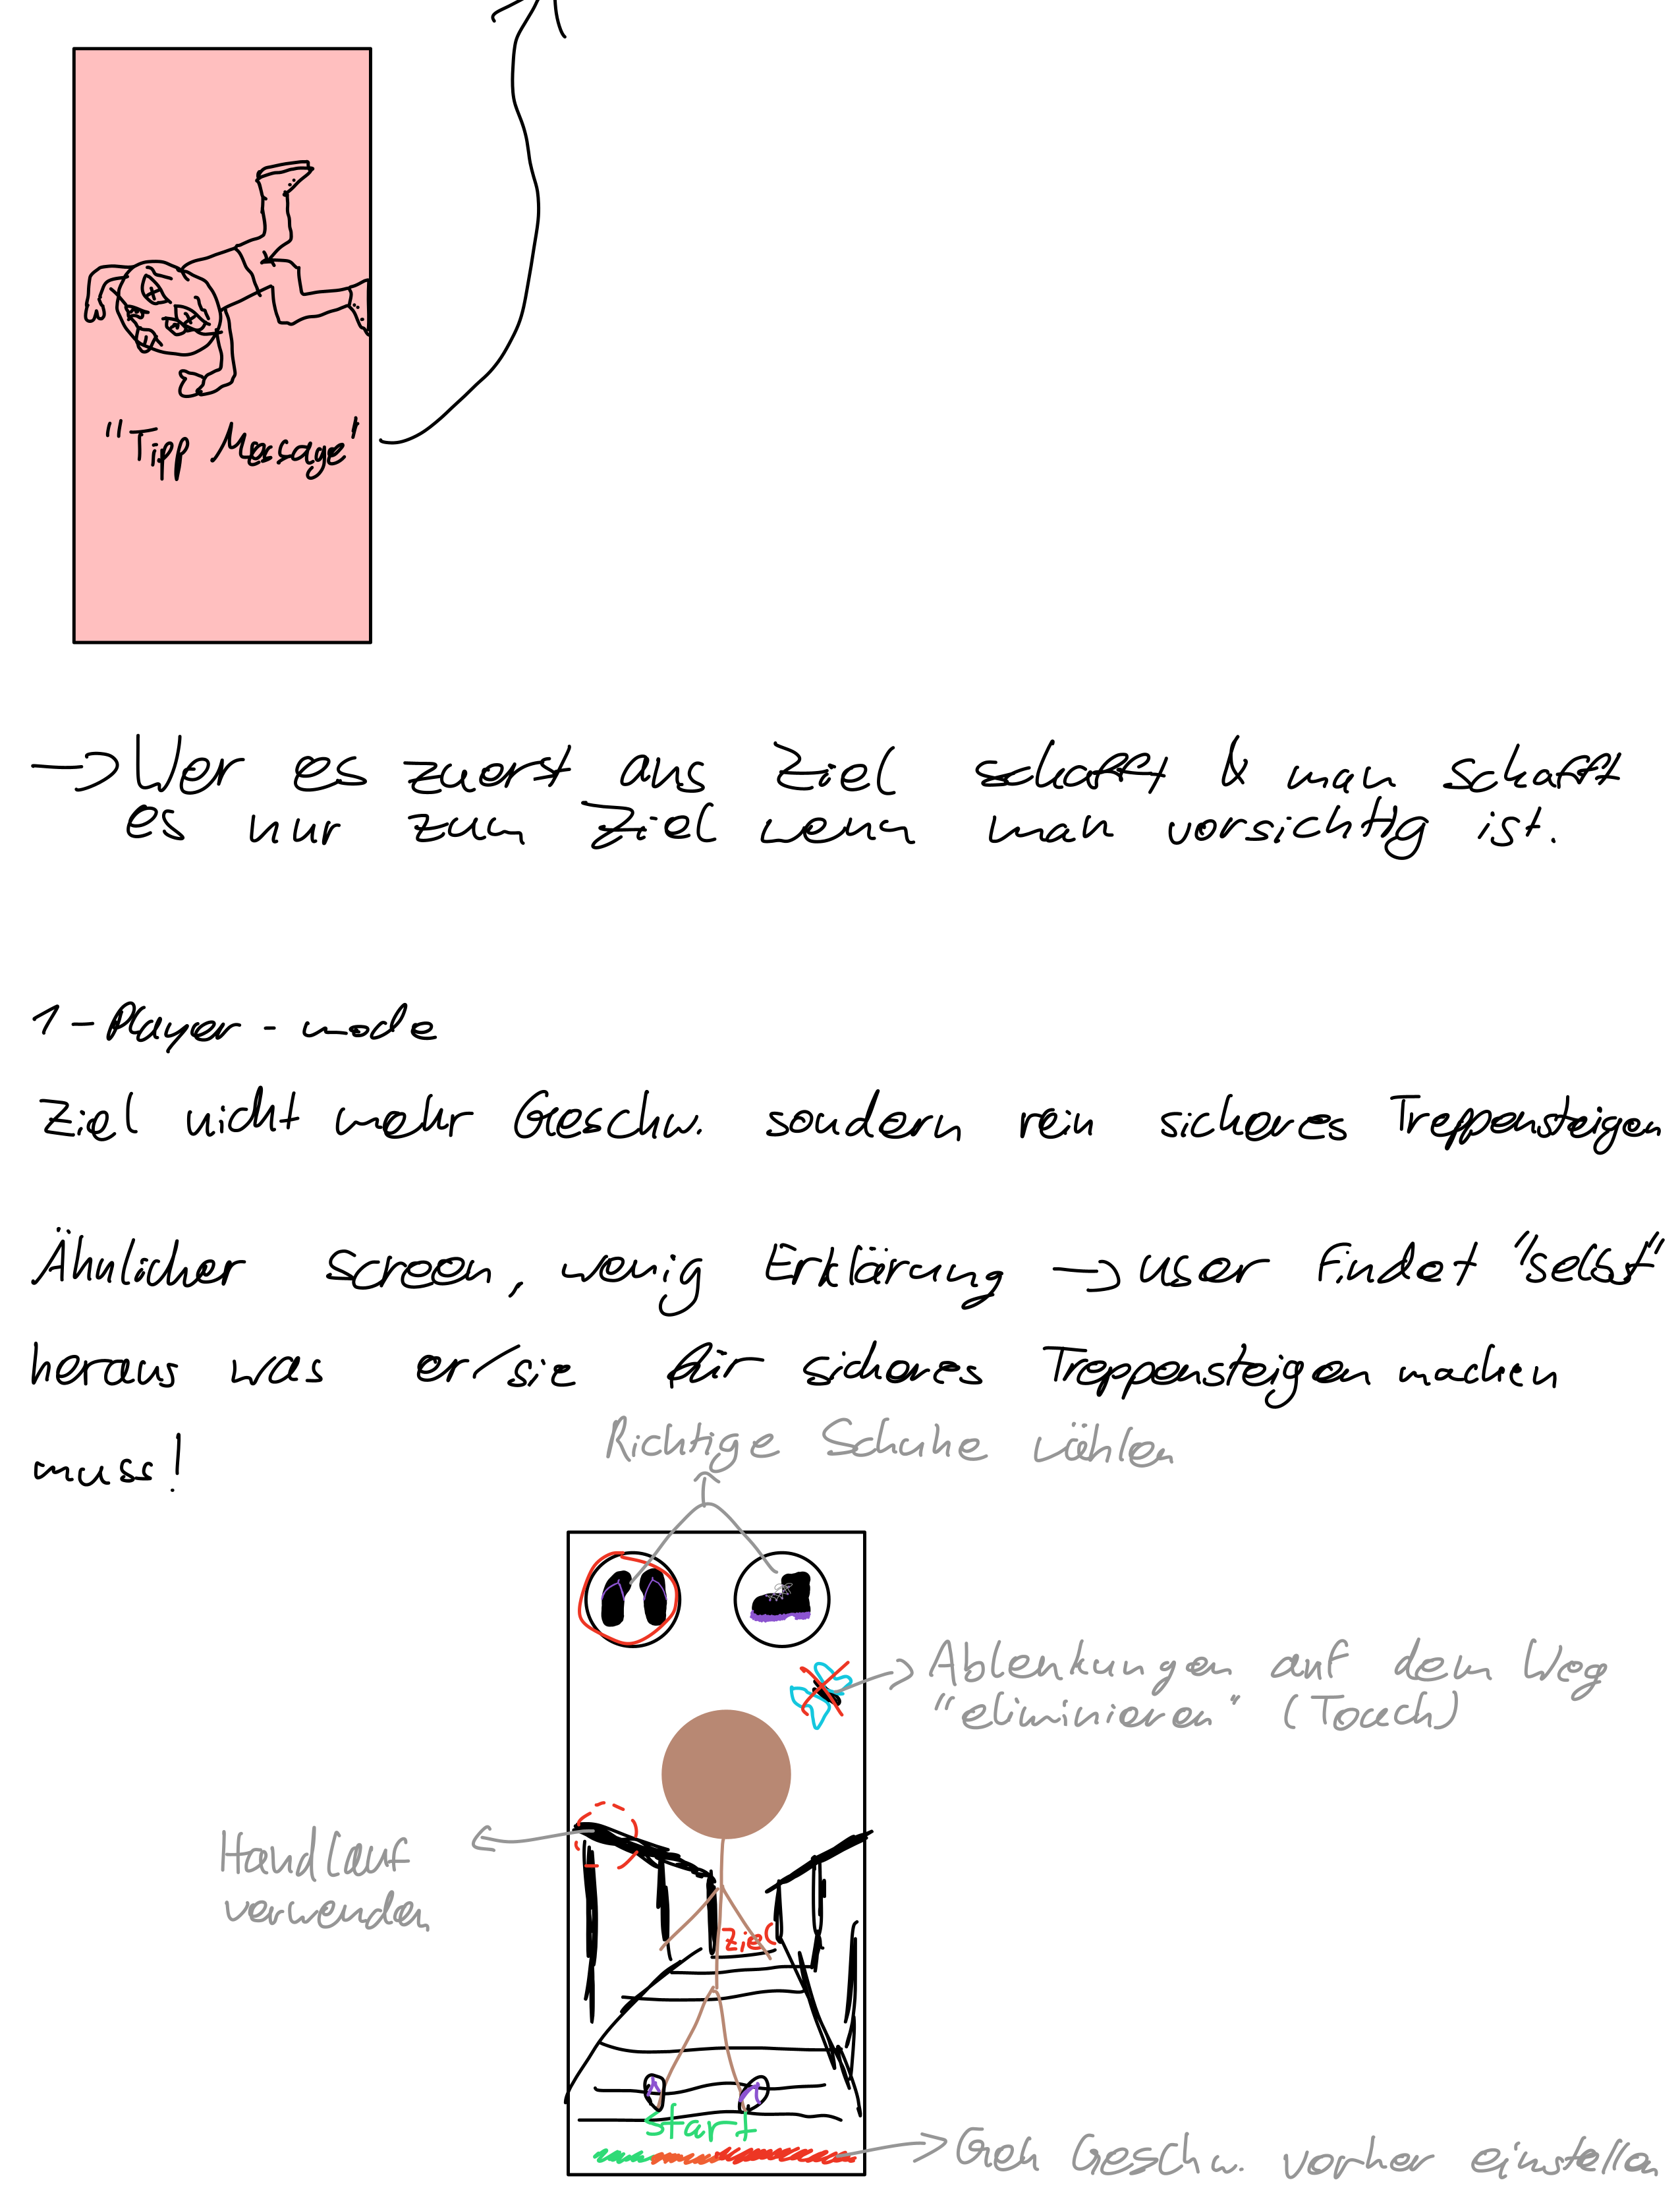 "Tipp Message"
→ Wer es zuerst ans Ziel schafft & man schafft
es nur zum Ziel wenn man vorsichtig ist.
1-Player-mode
Ziel nicht mehr Geschw. sondern rein sicheres Treppensteigen
Ähnlicher screen, wenig Erklärung → user findet "selbst"
heraus was er/sie für sicheres Treppensteigen machen
muss!
Richtige Schuhe wählen
Ablenkungen auf dem Weg
"eliminieren" (Touch)
Handlauf
verwenden
Ziel
Start
Geh Geschw. vorher einstellen